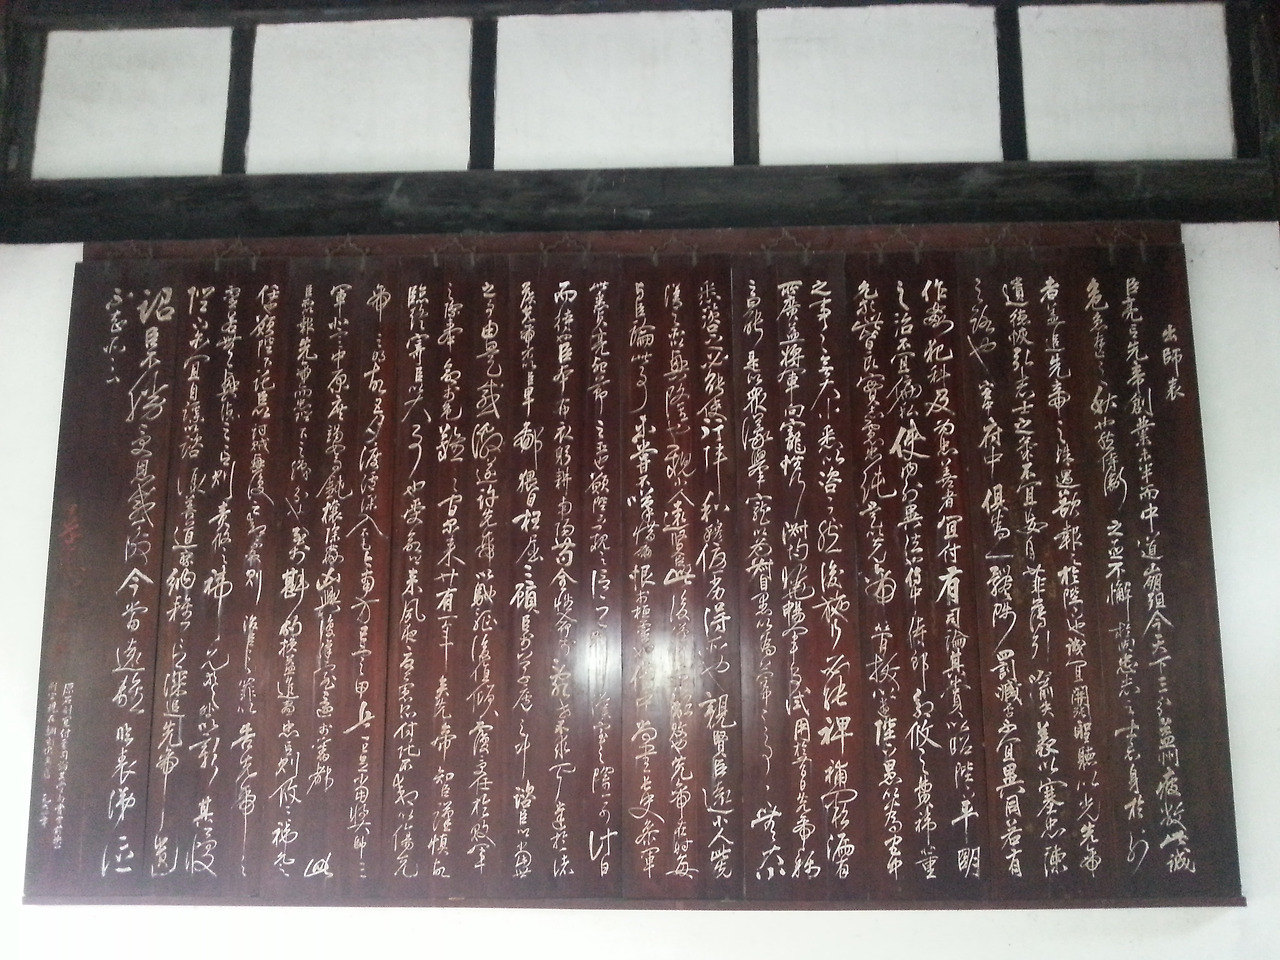 出師表
臣亮言先帝創業未半而中道崩殂今天下三分益州疲敝此誠
危急存亡之秋也然侍衛之臣不懈於內忠志之士忘身於外
者蓋追先帝之殊遇欲報之於陛下也誠宜開張聖聽以光先帝
遺德恢弘志士之氣不宜妄自菲薄引喻失義以塞忠諫
之路也宮中府中俱為一體陟罰臧否不宜異同若有
作奸犯科及為忠善者宜付有司論其刑賞以昭陛下平明
之治不宜偏私使內外異法也侍中侍郎郭攸之費禕董
允等此皆良實志慮忠純是以先帝簡拔以遺陛下愚以為宮中
之事事無大小悉以咨之然後施行必能裨補闕漏有
所廣益將軍向寵性行淑均曉暢軍事試用於昔日先帝稱
之曰能是以眾議舉寵以為督愚以為營中之事事無大小
悉以咨之必能使行陣和穆優劣得所也親賢臣遠小人此先
漢所以興隆也親小人遠賢臣此後漢所以傾頹也先帝在時每
與臣論此事未嘗不嘆息痛恨於桓靈也侍中尚書長史參軍
此悉貞亮死節之臣也願陛下親之信之則漢室之隆可計日
而待也臣本布衣躬耕南陽苟全性命於亂世不求聞達於諸
侯先帝不以臣卑鄙猥自枉屈三顧臣於草廬之中諮臣以當世
之事由是感激遂許先帝以驅馳後值傾覆受任於敗軍
之際奉命於危難之間爾來廿有一年矣先帝知臣謹慎故
臨崩寄臣以大事也受命以來夙夜憂慮恐付託不效以傷先
帝之明故五月渡瀘深入不毛今南方已定甲兵已足當獎帥三
軍北定中原庶竭駑鈍攘除姦凶興復漢室還於舊都此
臣所以報先帝而忠陛下之職分也至於斟酌損益進盡忠言則攸之禕允
之任也願陛下託臣以討賊興復之效不效則治臣之罪以告先帝之
靈若無興德之言則責攸之禕允等咎以彰其慢
陛下亦宜自謀以諮諏善道察納雅言深追先帝遺
詔臣不勝受恩感激今當遠離臨表涕泣
不知所云